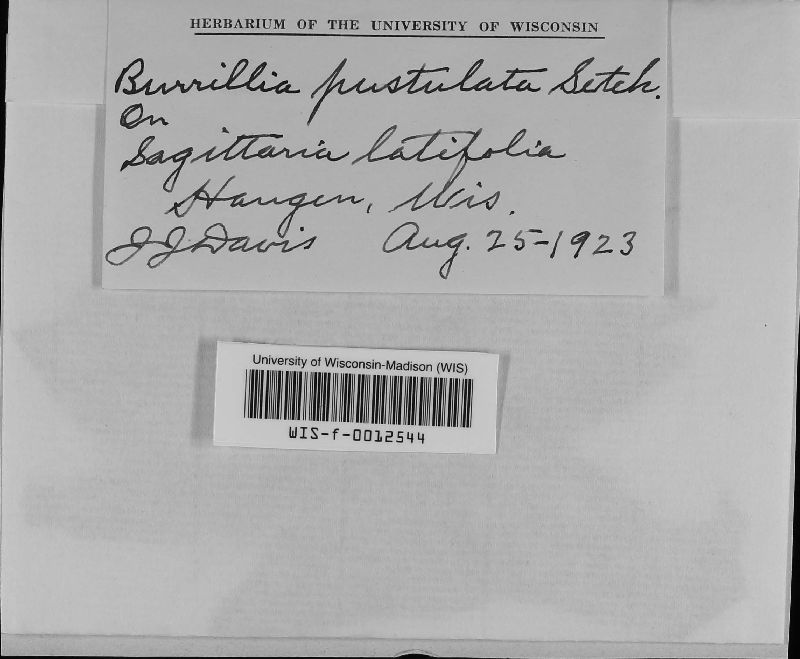 HERBARIUM OF THE UNIVERSITY OF WISCONSIN
Burrillia pustulata Setch.
On
Sagittaria latifolia
Haugen, Wis.
J J Davis Aug. 25-1923
University of Wisconsin-Madison (WIS)
WIS-f-0012544